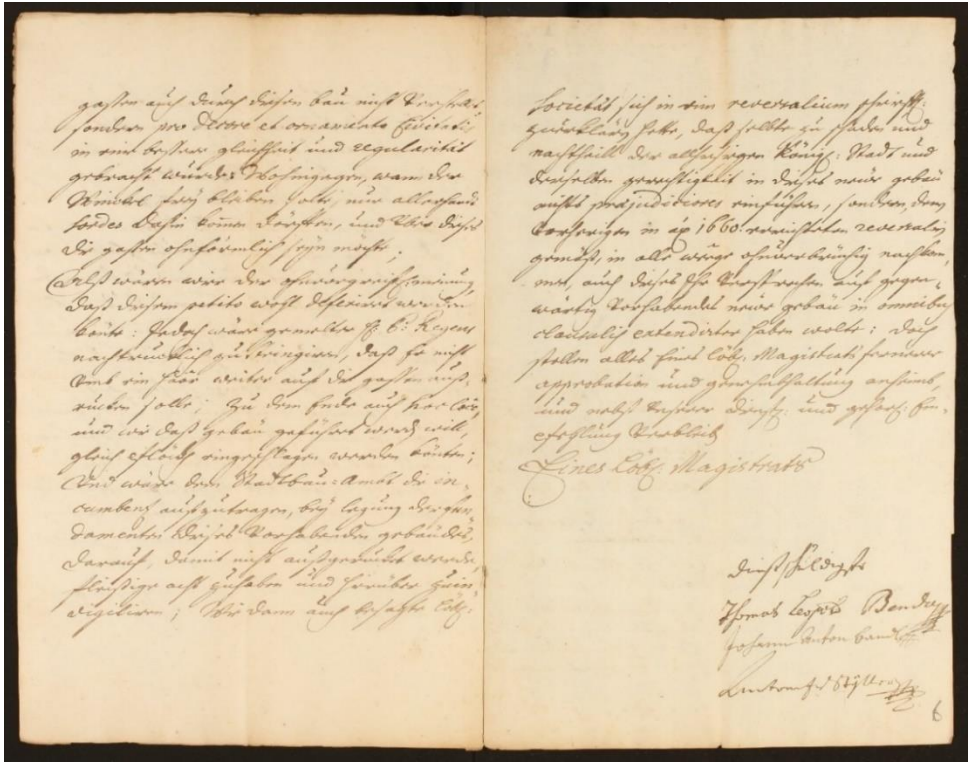 gassen auch durch diesen bau nicht
sondern pro decore et ornamento Civitatis
in eine bessere gleichheit und regularität
gebracht wurde; Wohingegen, wann der
Winckel frey bleiben solte, nur allerhand
sordes dahin komen dörfften, und über dieses
die gassen ohnförmlich seyn möchte;
Alß wären wir der ohnvorgreifflichen meinung,
daß diesem petito wohl deferiret werden
könte: Jedoch wäre gemelter H. P. Regens
nachtrucklich zu, daß Er nicht
umb ein Haar weiter auf die gassen auß-
rucken solle; Zu dem Ende auch hoc loco,
und wie daß gebäu geführet werden will,
gleich pflöckh eingeschlagen werden könten;
Und wäre dem Stadtbau-Ambt die in-
cumbenz aufzutragen, bey legung der fun-
damenten dieses vorhabenden gebäudes,
darauf, damit nicht außgeruckt werde,
fleissige acht zuhaben und hierüber zuin-
vigiliren; Wie dann auch besagte Löbl.
Societät sich in eim reversalium
zuerklären hette, daß selbte zu schaden und
nachtheill der allhiesigen Königl. Stadt und
derselben gerechtigkeit in dieses neue gebäu
nichts præjudicioses einführen, sondern, dem
vorherigen in aō 1660. errichteten reversali
gemäß, in alle weege ohnverbrüchig nachkom-
men, auch dieses Ihr Versprechen auf gegen-
wärtig vorhabendes neue gebäu in omnibus
clausulis extendirter haben wolte: Doch
stellen alles Eines Löbl. Magistrats fernerer
approbation und genehmbhaltung anheimb,
und nebst Unserer dienst- und gehors. Em-
pfehlung Verbleiben
Eines Löbl. Magistrats
dienstschuldigste
Thomas Leopold
Johann Anton
6